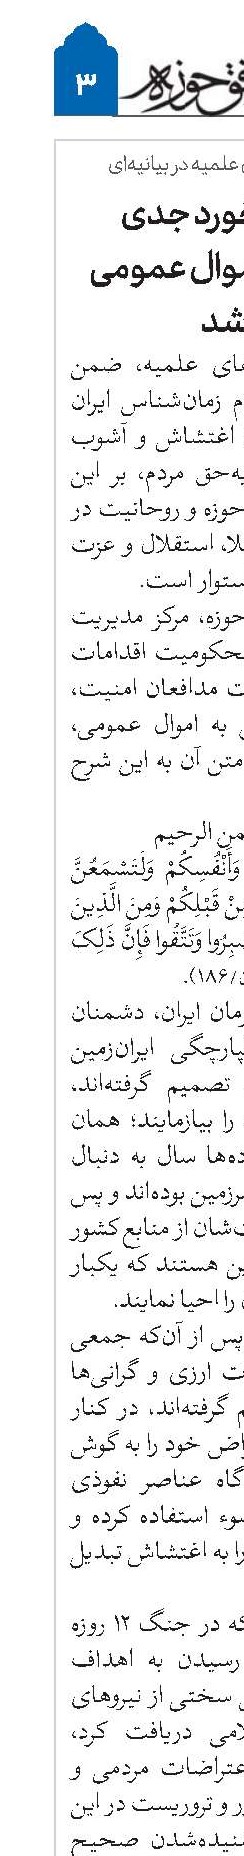 ۳
حوزه
علمیه در بیانیه‌ای
جدی
عمومی
علمیه، ضمن
زمان‌شناس ایران
اغتشاش و آشوب
مردم، بر این
حوزه و روحانیت در
استقلال و عزت
است.
حوزه، مرکز مدیریت
محکومیت اقدامات
مدافعان امنیت،
به اموال عمومی،
متن آن به این شرح
الرحیم
وَأَنْفُسِکُمْ وَلَتَسْمَعُنَّ
قَبْلِکُمْ وَمِنَ الَّذِینَ
وَتَتَّقُوا فَإِنَّ ذَلِکَ
/۱۸۶).
ایران، دشمنان
ایران‌زمین
تصمیم گرفته‌اند،
را بیازمایند؛ همان
سال به دنبال
بوده‌اند و پس
از منابع کشور
هستند که یکبار
را احیا نمایند.
پس از آن‌که جمعی
ارزی و گرانی‌ها
گرفته‌اند، در کنار
خود را به گوش
عناصر نفوذی
استفاده کرده و
را به اغتشاش تبدیل
که در جنگ ۱۲ روزه
رسیدن به اهداف
سختی از نیروهای
دریافت کرد،
اعتراضات مردمی و
و تروریست در این
صحیح